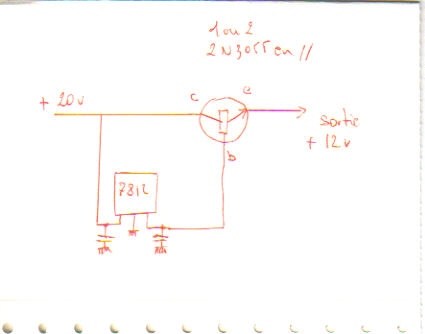 1 ou 2
2N3055 en //
c
e
+ 20v
sortie
+ 12v
b
7812